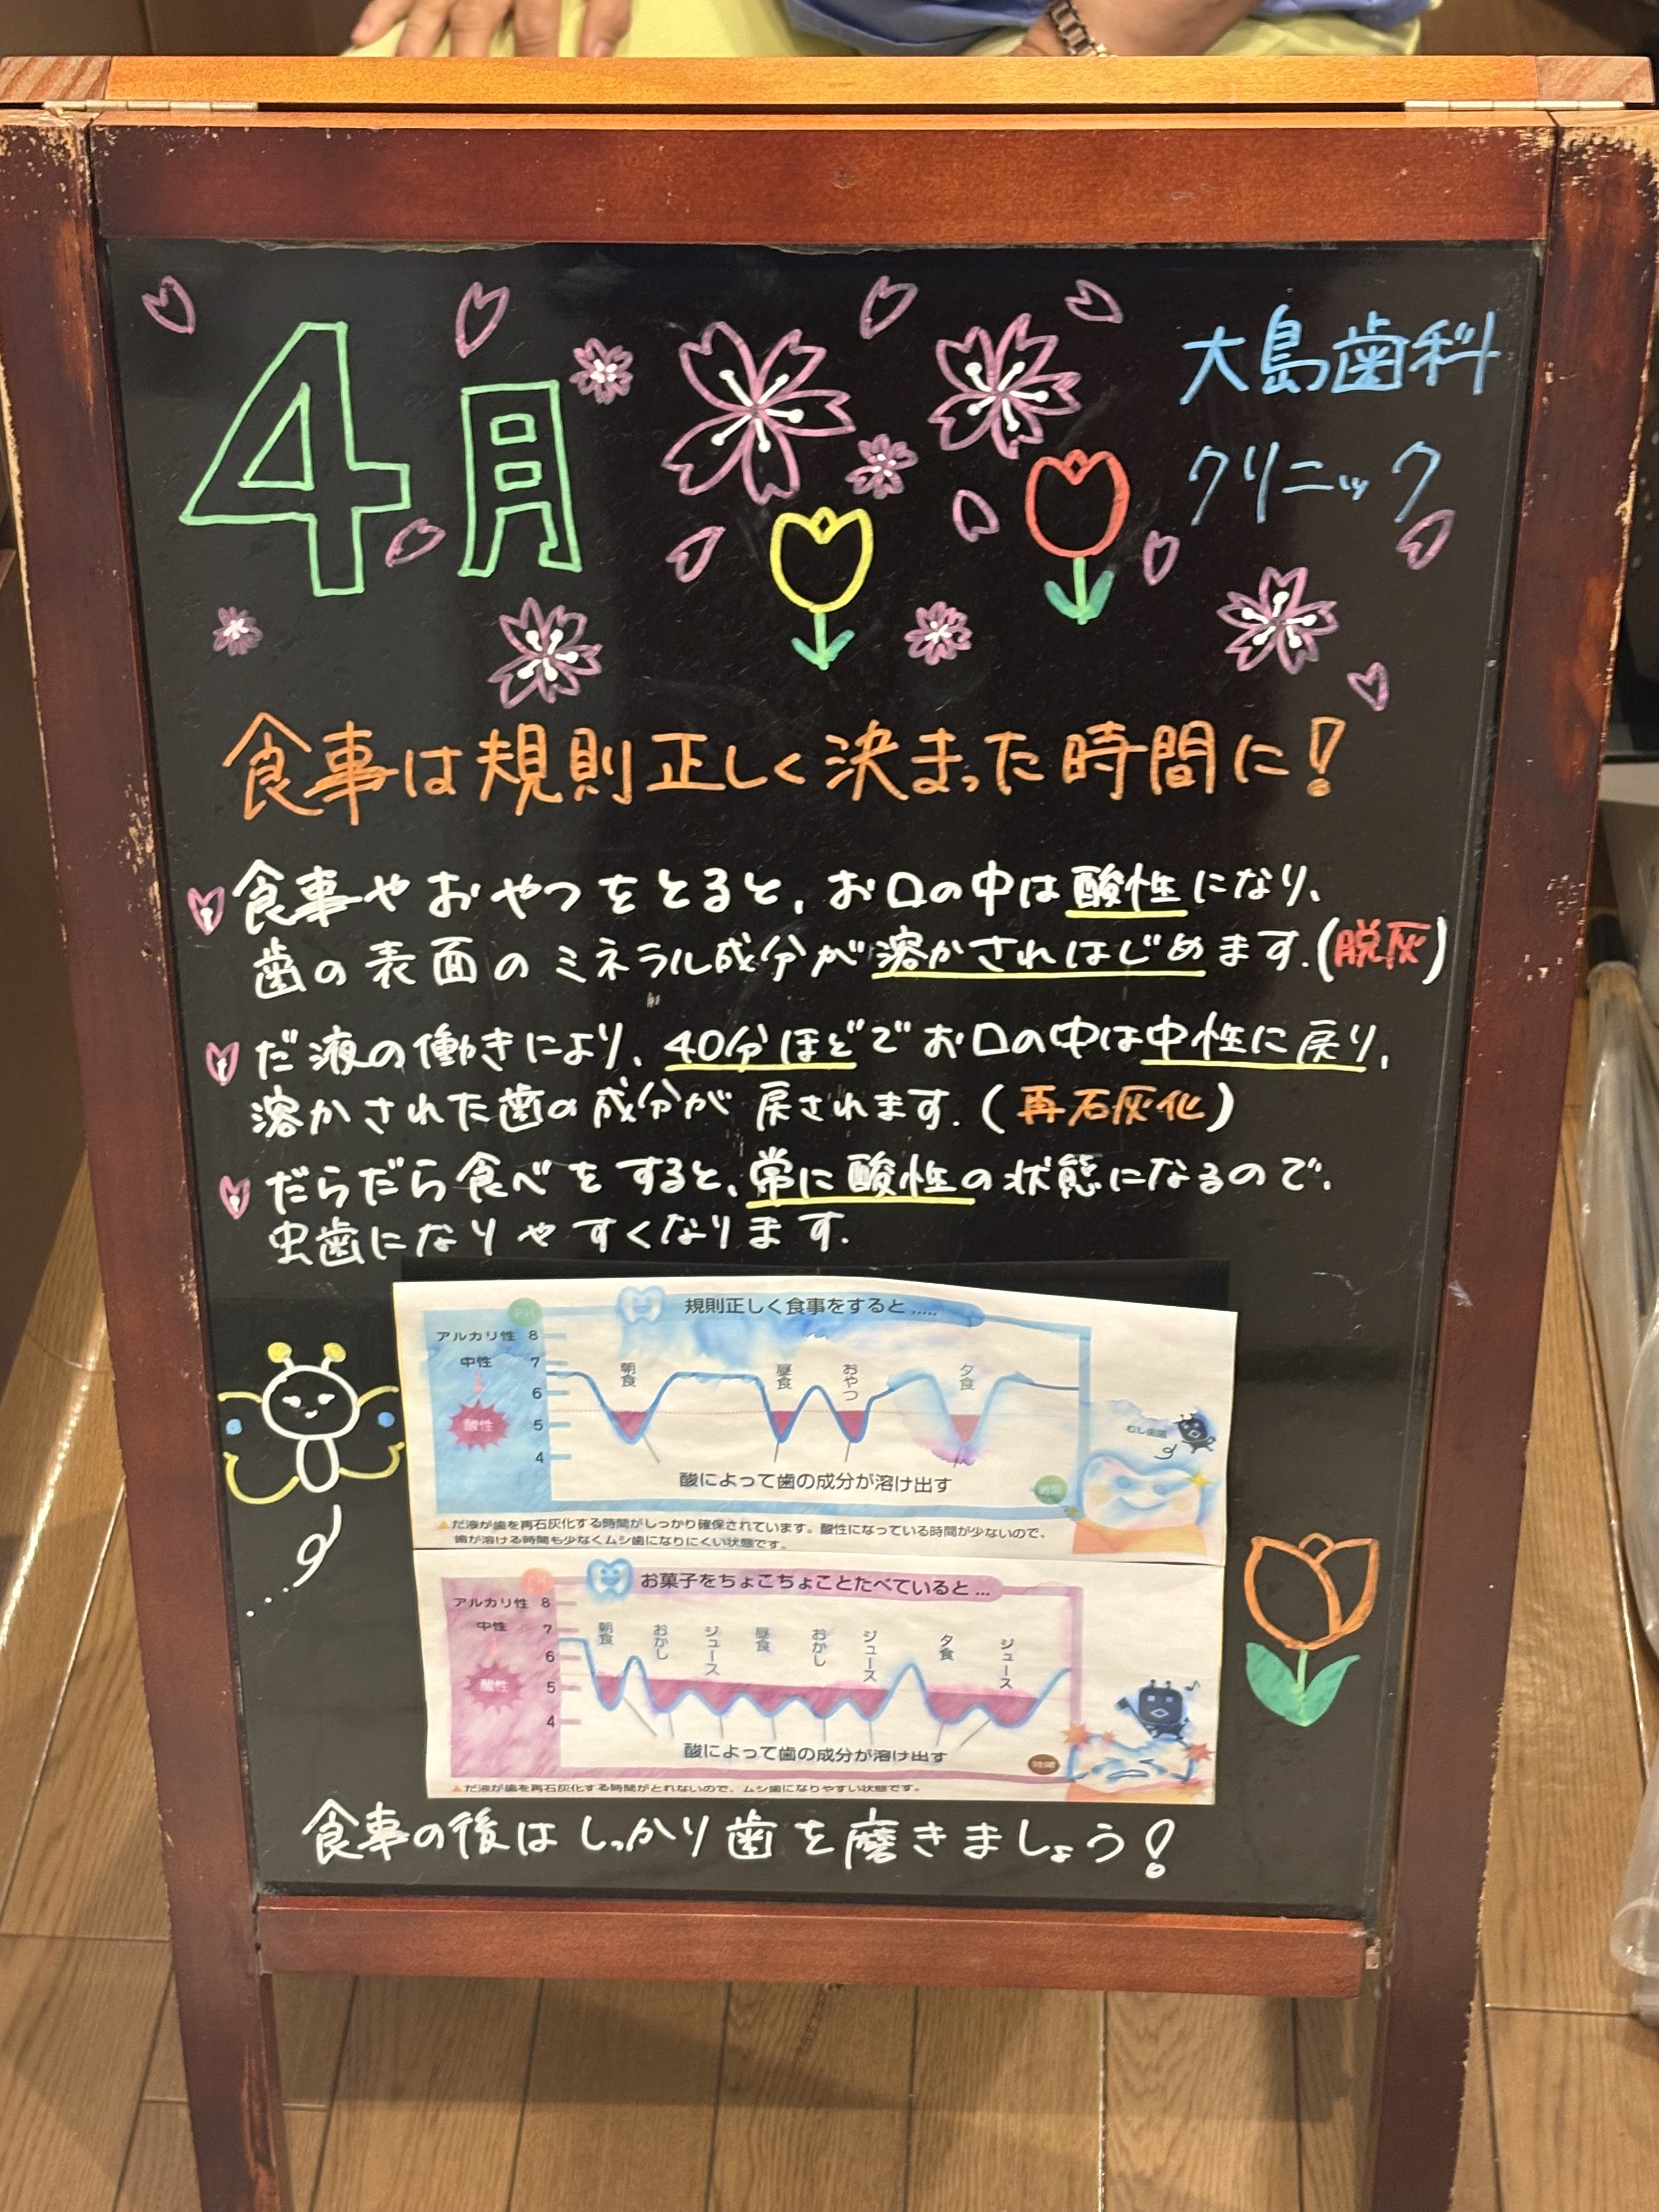 4月
大島歯科
クリニック
食事は規則正しく決まった時間に!
食事やおやつをとると、お口の中は酸性になり、
歯の表面のミネラル成分が溶かされはじめます.(脱灰)
だ液の働きにより、40分ほどでお口の中は中性に戻り、
溶かされた歯の成分が戻されます.(再石灰化)
だらだら食べをすると、常に酸性の状態になるので、
虫歯になりやすくなります.
PH
規則正しく食事をすると.....
アルカリ性 8
中性 7
6
酸性 5
4
朝食
昼食
おやつ
夕食
むし歯菌
酸によって歯の成分が溶け出す
時間
▲だ液が歯を再石灰化する時間がしっかり確保されています。酸性になっている時間が少ないので、
歯が溶ける時間も少なくムシ歯になりにくい状態です。
お菓子をちょこちょことたべていると...
アルカリ性 8
中性 7
6
酸性 5
4
朝食
おかし
ジュース
昼食
おかし
ジュース
夕食
ジュース
酸によって歯の成分が溶け出す
時間
▲だ液が歯を再石灰化する時間がとれないので、ムシ歯になりやすい状態です。
食事の後はしっかり歯を磨きましょう!